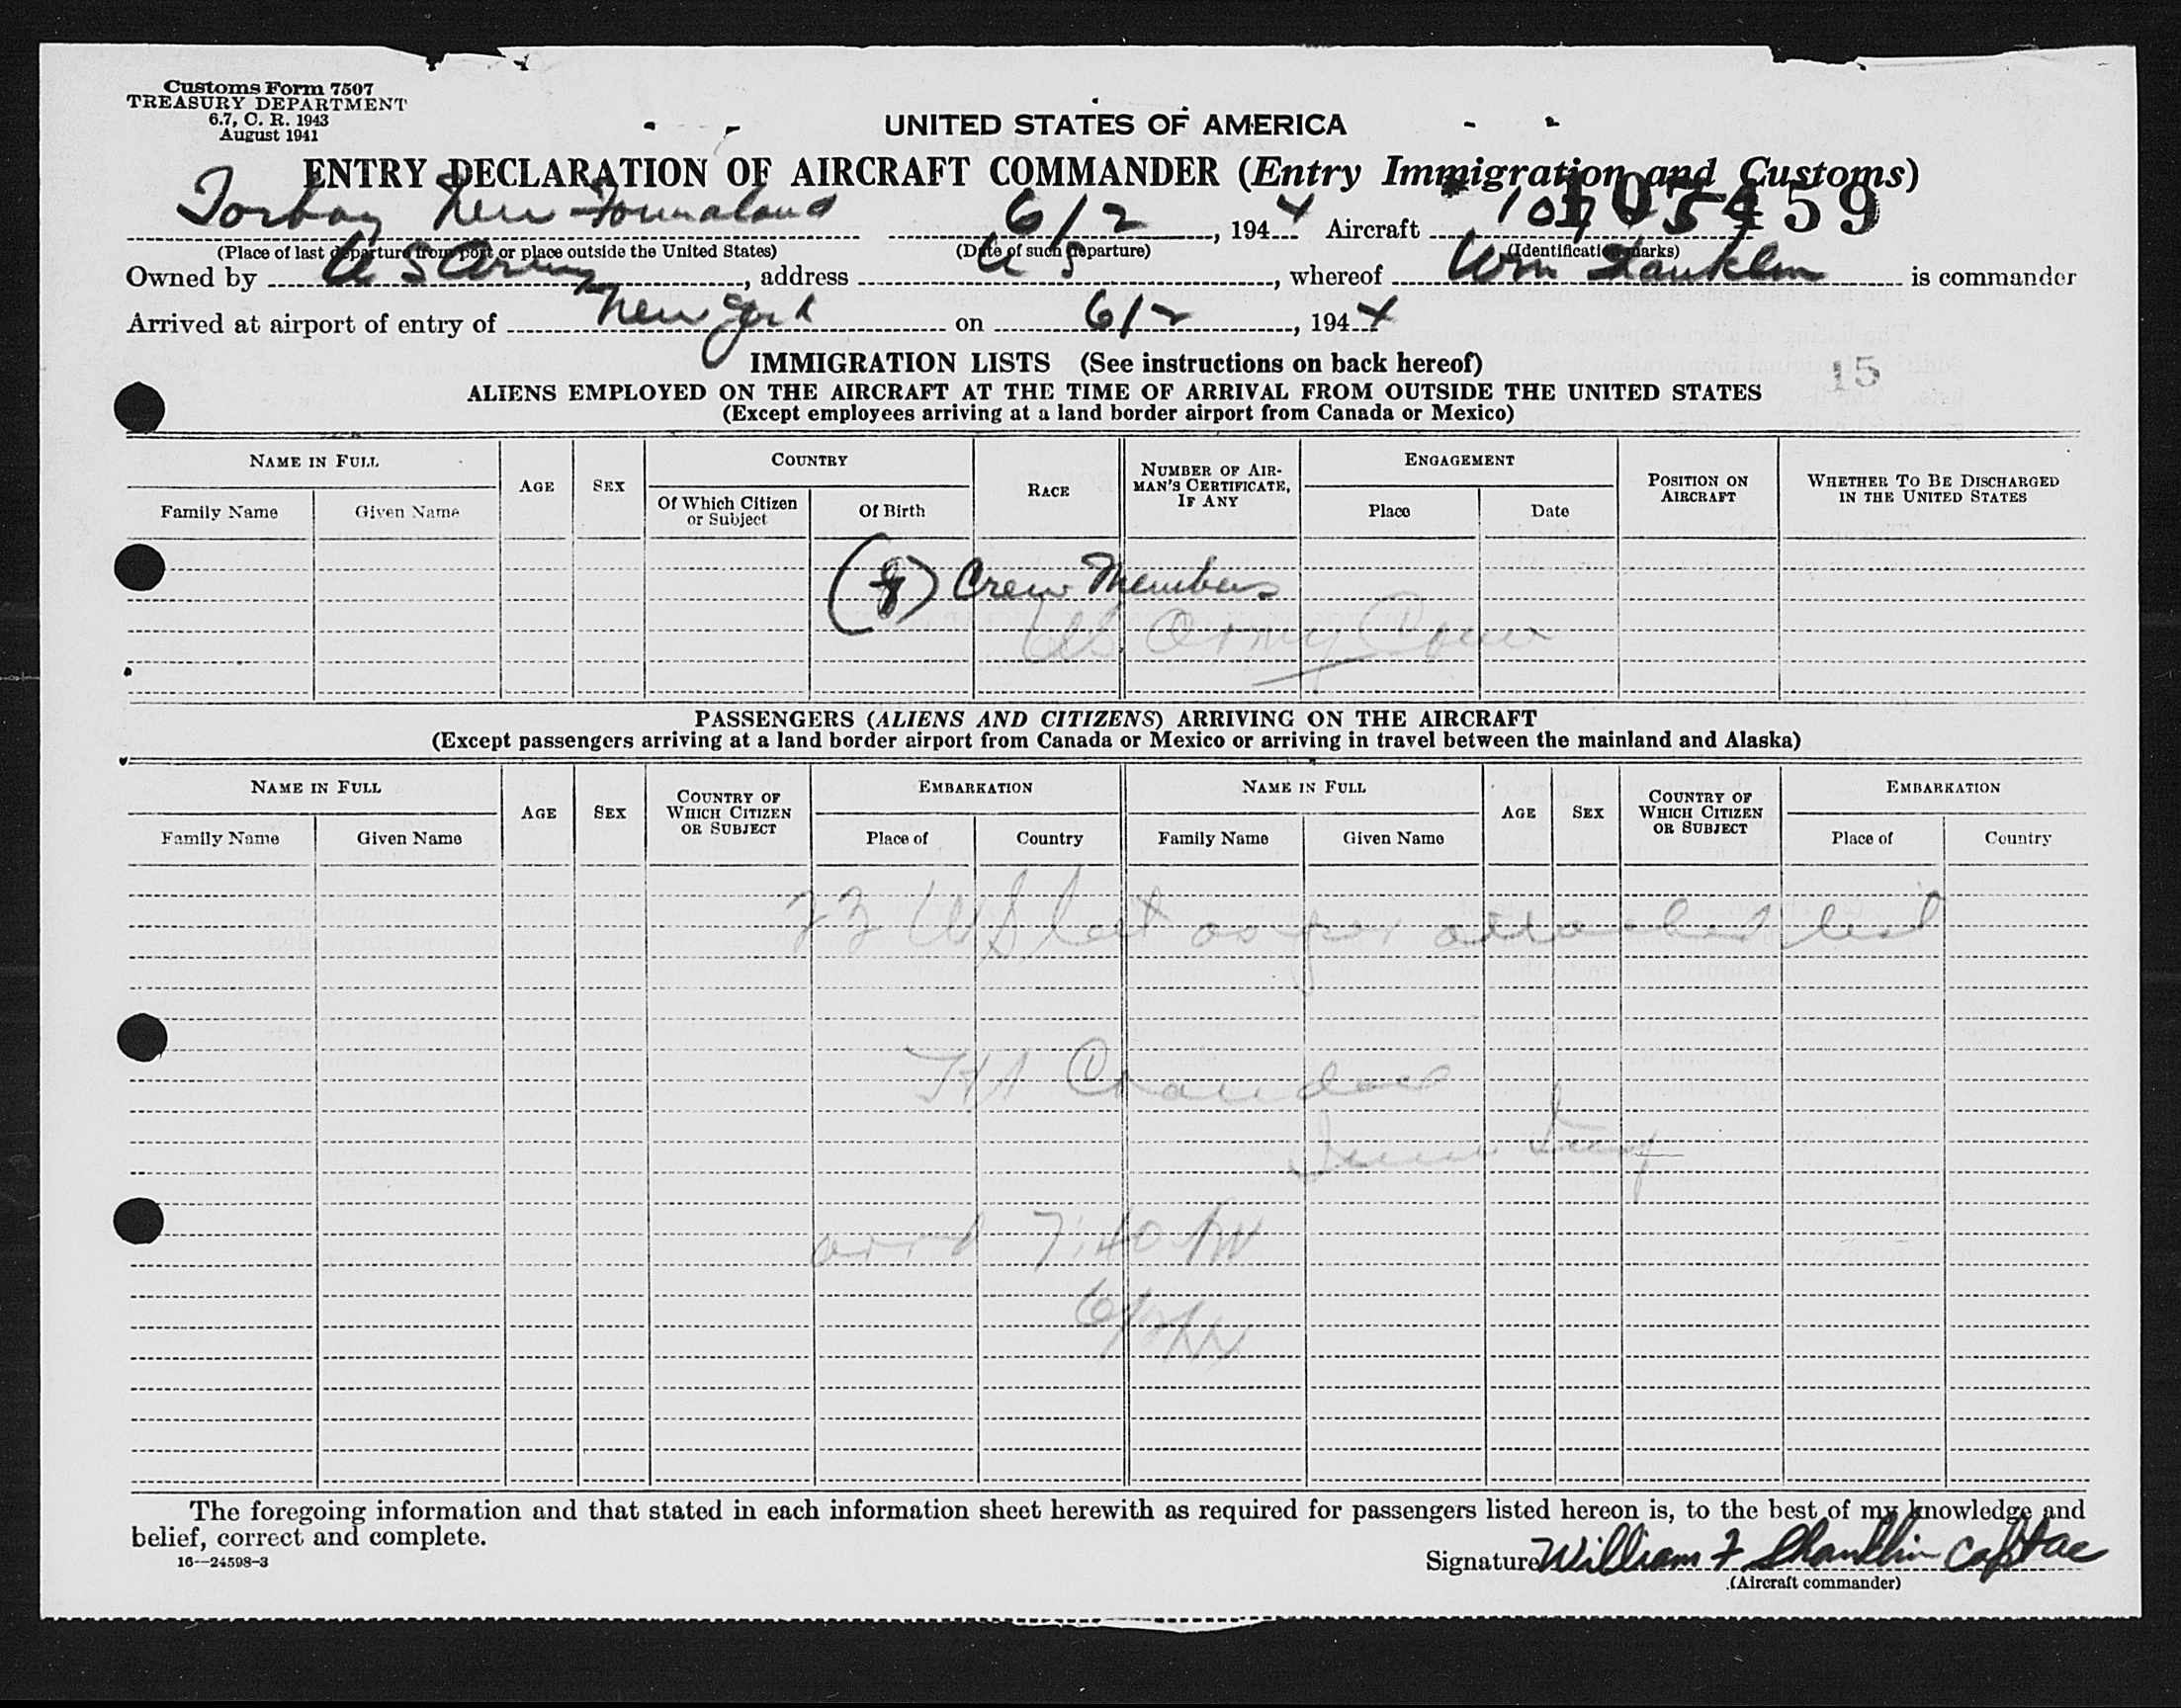 Customs Form 7507
TREASURY DEPARTMENT
6.7, C. R. 1943
August 1941
UNITED STATES OF AMERICA
ENTRY DECLARATION OF AIRCRAFT COMMANDER (Entry Immigration and Customs)
105459
Torbay Newfoundland 6/2, 1944 Aircraft
(Place of last departure from port or place outside the United States) (Date of such departure) (Identification marks)
Owned by U S Army, address U S, whereof Wm Shanklin is commander
Arrived at airport of entry of New York on 6/2, 1944
IMMIGRATION LISTS (See instructions on back hereof)
15
ALIENS EMPLOYED ON THE AIRCRAFT AT THE TIME OF ARRIVAL FROM OUTSIDE THE UNITED STATES
(Except employees arriving at a land border airport from Canada or Mexico)
NAME IN FULL AGE SEX COUNTRY RACE NUMBER OF AIRMAN'S CERTIFICATE, IF ANY ENGAGEMENT POSITION ON AIRCRAFT WHETHER TO BE DISCHARGED IN THE UNITED STATES
Family Name Given Name Of Which Citizen or Subject Of Birth Place Date
Crew Members
US Army Crew
PASSENGERS (ALIENS AND CITIZENS) ARRIVING ON THE AIRCRAFT
(Except passengers arriving at a land border airport from Canada or Mexico or arriving in travel between the mainland and Alaska)
NAME IN FULL AGE SEX COUNTRY OF WHICH CITIZEN OR SUBJECT EMBARKATION NAME IN FULL AGE SEX COUNTRY OF WHICH CITIZEN OR SUBJECT EMBARKATION
Family Name Given Name Place of Country Family Name Given Name Place of Country
23 US as per attached list
arrd 7:40 PM
6/2/44
The foregoing information and that stated in each information sheet herewith as required for passengers listed hereon is, to the best of my knowledge and
belief, correct and complete.
16—24598-3
Signature William F Shanklin Capt ac
(Aircraft commander)